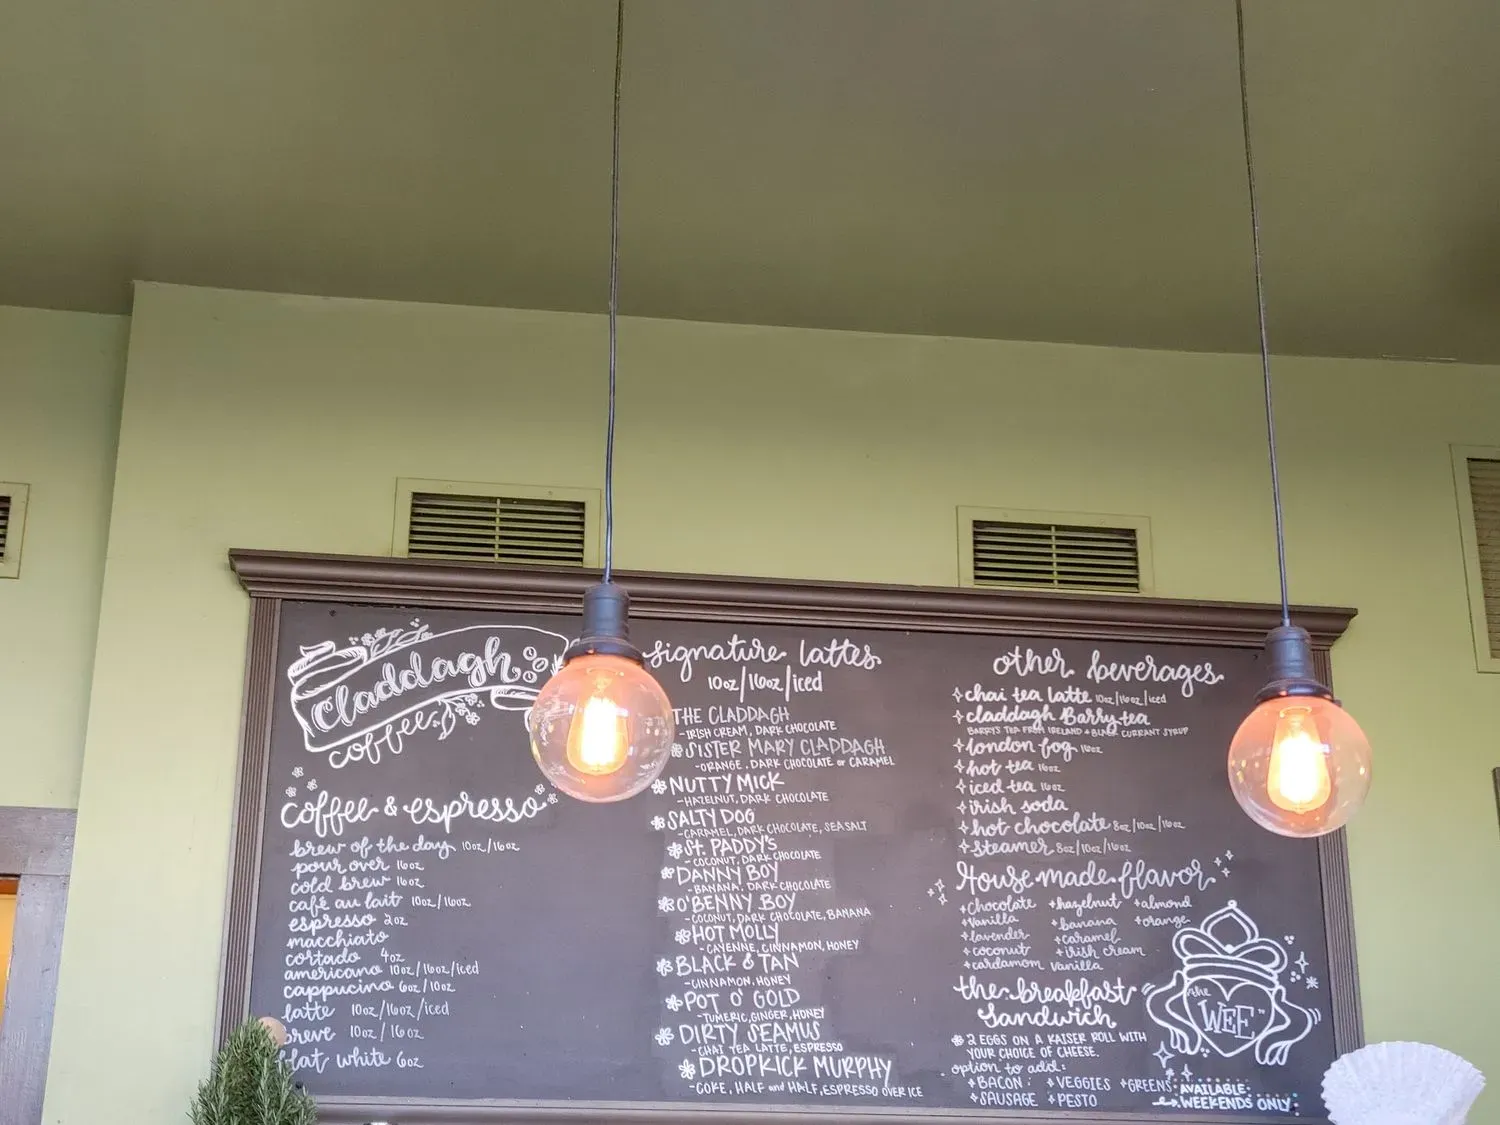 Claddagh
coffee
coffee & espresso
brew of the day 10oz/16oz
pour over 16oz
cold brew 16oz
café au lait 10oz/16oz
espresso 2oz
macchiato
cortado 4oz
americano 10oz/16oz/iced
cappucino 6oz/10oz
latte 10oz/16oz/iced
breve 10oz/16oz
flat white 6oz
signature lattes
10oz/16oz/iced
THE CLADDAGH
-IRISH CREAM, DARK CHOCOLATE
SISTER MARY CLADDAGH
-ORANGE, DARK CHOCOLATE or CARAMEL
NUTTY MICK
-HAZELNUT, DARK CHOCOLATE
SALTY DOG
-CARAMEL, DARK CHOCOLATE, SEA SALT
ST. PADDY'S
-COCONUT, DARK CHOCOLATE
DANNY BOY
-BANANA, DARK CHOCOLATE
O'BENNY BOY
-COCONUT, DARK CHOCOLATE, BANANA
HOT MOLLY
-CAYENNE, CINNAMON, HONEY
BLACK & TAN
-CINNAMON, HONEY
POT O' GOLD
-TUMERIC, GINGER, HONEY
DIRTY SEAMUS
-CHAI TEA LATTE, ESPRESSO
DROPKICK MURPHY
-COKE, HALF and HALF, ESPRESSO OVER ICE
other beverages
chai tea latte 10oz/16oz/iced
claddagh Barry tea
BARRY'S TEA FROM IRELAND + BLACK CURRANT SYRUP
london fog 16oz
hot tea 16oz
iced tea 16oz
irish soda
hot chocolate 8oz/10oz/16oz
steamer 8oz/10oz/16oz
House made flavor
+Chocolate +hazelnut +almond
+Vanilla +banana +orange
+lavender +caramel
+coconut +irish cream
+cardamom vanilla
the breakfast
sandwich
2 EGGS ON A KAISER ROLL WITH
YOUR CHOICE OF CHEESE.
option to add:
+BACON +VEGGIES +GREENS
+SAUSAGE +PESTO
AVAILABLE
WEEKENDS ONLY
the
WEE